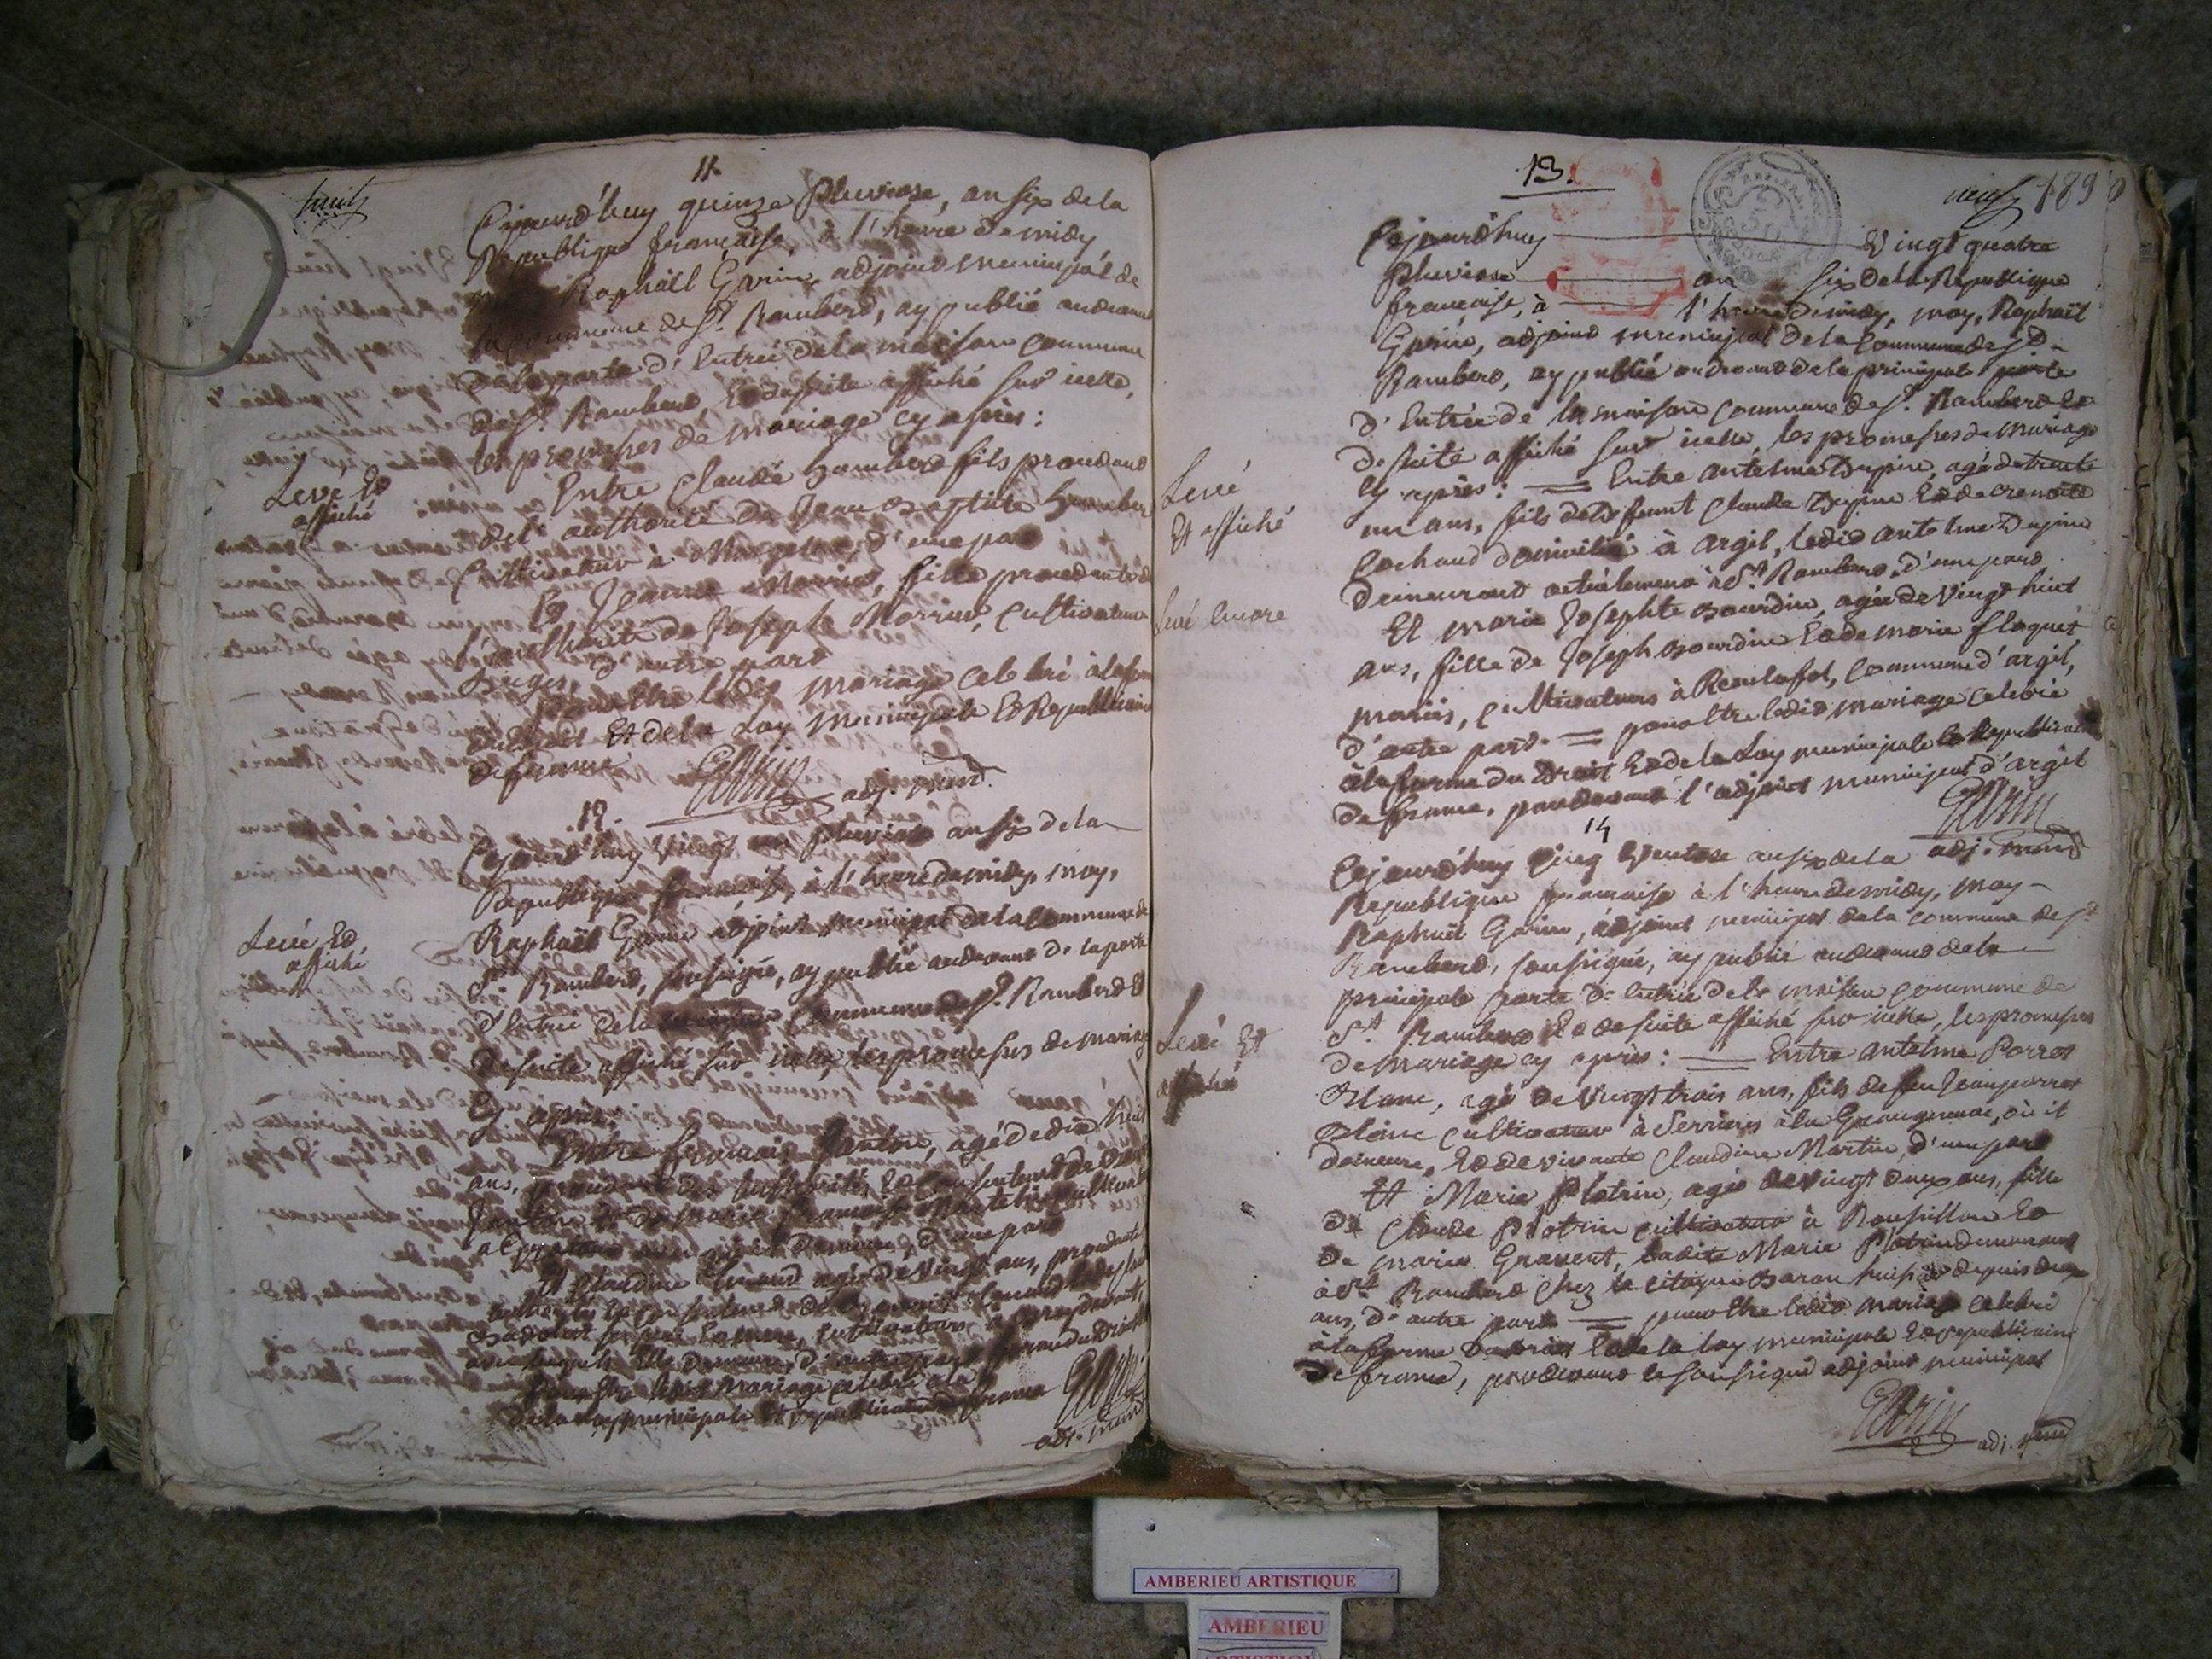 huit
11.
Cejourd'huy quinze Pluviose, an six de la
Republique française, à l'heure de midy
Raphaël Garin, adjoint municipal de
la commune de St. Rambert, ay publié audevant
de la porte d'Entrée de la maison commune
de St. Rambert, Et de suite affiché sur icelle,
les promesses de mariage cy après :
Levé Et
affiché
Entre Claude humbert fils procedant
de l'authorité de Jean Baptiste humbert
Cultivateur à d'une part
Et Jeanne Morrier, fille procedante de
l'authorité de Joseph Morrier, Cultivateur
d'autre part
pour être ledit mariage celebré à la forme
du droit Et de la Loy municipale Et Republicaine
de france Garin adj. mun.
12.
Cejourd'huy vingt un pluviose an six de la
Republique française, à l'heure de midy, moy,
Raphaël Garin adjoint municipal de la commune de
Levé Et
affiché
St. Rambert, soussigné, ay publié audevant de la porte
d'Entrée de la commune de St. Rambert Et
de suite affiché sur icelle, les promesses de mariage
Cy après.
Entre françois Janton, agé de dix huit
ans, procedant des authorité, Et consentement de
Janton Et de marie françoise
d'une part
Et Claudine agée de vingt ans, procedante
authorité Et consentement de
ses père Et mère, cultivateurs
avec lesquels Elle demeure, d'autre part
pour être ledit mariage celebré à la forme du Droit
de la Loy municipale Et republicaine de france Garin
adj. mun.
13.
neuf 189
Cejourd'huy Vingt quatre
Pluviose an six de la Republique
française, à l'heure de midy, moy, Raphaël
Garin, adjoint municipal de la Commune de St.
Rambert, ay publié audevant de la principale porte
d'Entrée de la maison Commune de St. Rambert Et
de suite affiché sur icelle, les promesses de mariage
Levé
Et affiché
Cy après : = Entre antelme Dupin, agé de trente
un ans, fils de deffunt Claude Dupin Et de
Cochaud domiciliés à argil, ledit antelme Dupin
demeurant actuelement à St. Rambert, d'une part
Levé Encore
Et marie Josephte Bourdin, agée de vingt huit
ans, fille de Joseph Bourdin Et de marie floquet
mariés, cultivateurs à Reculafol, commune d'argil,
d'autre part. = pour être ledit mariage celebré
à la forme du Droit Et de la Loy municipale Et Republicaine
de france, pardevant l'adjoint municipal d'argil
Garin
adj. mun.
14
Cejourd'huy Cinq Ventose an six de la
Republique française à l'heure de midy, moy
Raphaël Garin, adjoint municipal de la commune de St.
Rambert, soussigné, ay publié audevant de la
principale porte d'Entrée de la maison commune de
Levé Et
affiché
St. Rambert Et de suite affiché sur icelle, les promesses
de mariage cy après : = Entre antelme Porret
Blanc, agé de vingt trois ans, fils de feu Jean porret
Blanc cultivateur à Serrieres à la où il
demeure, Et de vivante Claudine Martin, d'une part
Et Marie Plotrin, agée de vingt deux ans, fille
de Claude Plotrin cultivateur à Roussillon Et
de marie Gravent, ladite Marie Plotrin demeurant
à St. Rambert chez le citoyen Baron huissier depuis deux
ans, d'autre part = pour être ledit mariage celebré
à la forme du Droit Et de la Loy municipale Et republicaine
de france, pardevant le soussigné adjoint municipal
Garin adj. mun.
AMBERIEU ARTISTIQUE
AMBERIEU
ARTISTIQUE